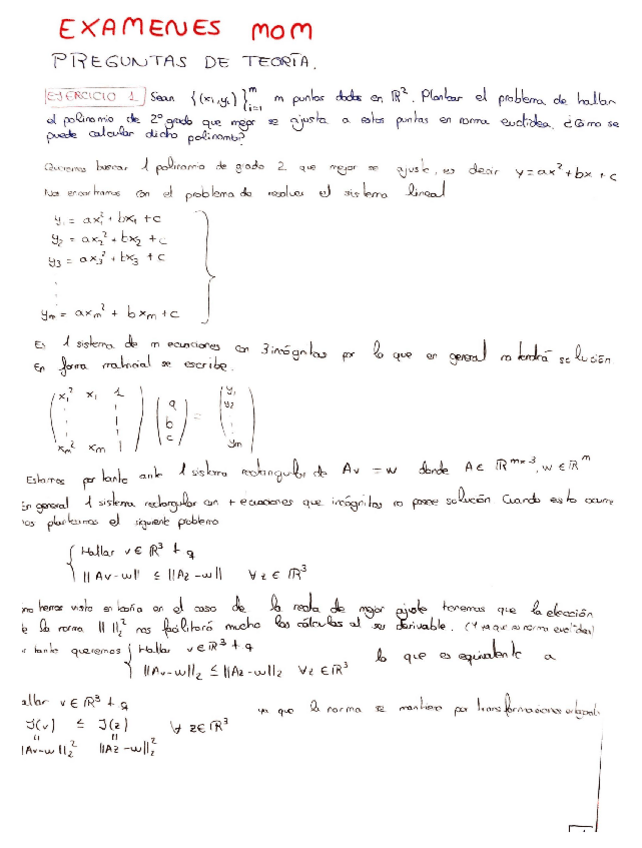 EXAMENES MOM
PREGUNTAS DE TEORÍA.
EJERCICIO 1 Sean {(xi, yi)}ᵐᵢ₌₁ m puntos dados en ℝ². Plantear el problema de hallar
el polinomio de 2º grado que mejor se ajusta a estos puntos en norma euclídea. ¿Cómo se
puede calcular dicho polinomio?
Queremos buscar 1 polinomio de grado 2 que mejor se ajuste, es decir y = ax² + bx + c
Nos encontramos con el problema de resolver el sistema lineal
y₁ = ax₁² + bx₁ + c
y₂ = ax₂² + bx₂ + c
y₃ = ax₃² + bx₃ + c
⋮
ym = axm² + bxm + c
Es 1 sistema de m ecuaciones con 3 incógnitas por lo que en general no tendrá solución
En forma matricial se escribe.
x₁² x₁ 1 a y₁
⋮ ⋮ b = y₂
⋮ ⋮ c ⋮
xm² xm 1 ym
Estamos por tanto ante 1 sistema rectangular de Av = w donde A ∈ ℝᵐˣ³, w ∈ ℝᵐ
En general 1 sistema rectangular con + ecuaciones que incógnitas no posee solución Cuando esto ocurre
nos planteamos el siguiente problema
{ Hallar v ∈ ℝ³ t q
||Av-w|| ≤ ||Az-w|| ∀ z ∈ ℝ³
mo hemos visto en teoría en el caso de la recta de mejor ajuste tenemos que la elección
e la norma || ||₂² nos facilitará mucho los cálculos al ser derivable. (Y ya que es norma euclídea)
r tanto queremos { Hallar v ∈ ℝ³ t q
||Av-w||₂ ≤ ||Az-w||₂ ∀ z ∈ ℝ³ lo que es equivalente a
allar v ∈ ℝ³ t q
J(v) ≤ J(z) ∀ z ∈ ℝ³ ya que la norma se mantiene por transformaciones ortogonal
|| ||
||Av-w||₂² ||Az-w||₂²